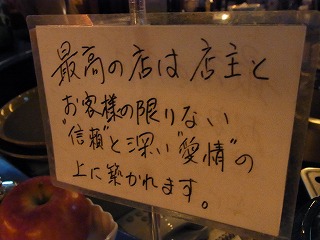 最高の店は店主と
お客様の限りない
"信頼"と深い"愛情"の
上に築かれます。